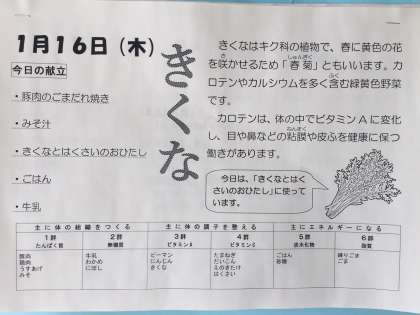 1月16日(木)
今日の献立
・豚肉のごまだれ焼き
・みそ汁
・きくなとはくさいのおひたし
・ごはん
・牛乳
きくな
きくなはキク科の植物で、春に黄色の花
を咲かせるため「春菊」ともいいます。カ
ロテンやカルシウムを多く含む緑黄色野菜
です。
カロテンは、体の中でビタミンAに変化
し、目や鼻などの粘膜や皮ふを健康に保つ
働きがあります。
今日は、「きくなとはく
さいのおひたし」に使って
います。
主に体の組織をつくる 主に体の調子を整える 主にエネルギーになる
1群 2群 3群 4群 5群 6群
たんぱく質 無機質 ビタミンA ビタミンC 炭水化物 脂質
豚肉 牛乳 ピーマン たまねぎ ごはん 練りごま
鶏肉 わかめ にんじん だいこん 砂糖 ごま
うすあげ にぼし きくな えのきたけ
みそ はくさい